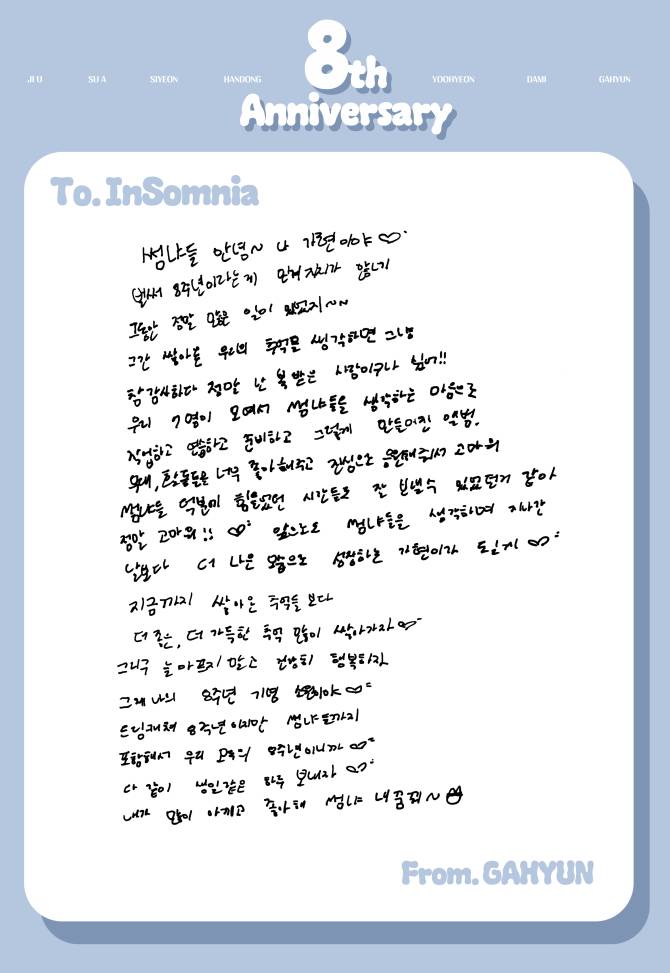 8th
Anniversary
JI U SU A SIYEON HANDONG YOOHYEON DAMI GAHYUN
To. InSomnia
썸냐들 안녕~ 나 가현이야♡
벌써 8주년이라는게 믿겨지지가 않네
그동안 정말 많은 일이 있었지~~
그간 쌓아온 우리의 추억을 생각하면 그냥
참 감사하다 정말 난 복 받은 사람이구나 싶어!!
우리 7명이 모여서 썸냐들을 생각하는 마음으로
작업하고 연습하고 준비하고 그렇게 만들어진 앨범.
무대, 활동들을 너무 좋아해주고 진심으로 응원해줘서 고마워
썸냐들 덕분에 힘들었던 시간들도 잘 보낼수 있었던거 같아
정말 고마워!! ♡ 앞으로도 썸냐들을 생각하며 지나간
날보다 더 나은 모습으로 성장하는 가현이가 될게♡
지금까지 쌓아온 추억들 보다
더 좋은, 더 가득한 추억 많이 쌓아가자♡
그리구 늘 아프지 말고 건강히 행복하자
그게 나의 8주년 기념 소원이야♡
드림캐쳐 8주년이지만 썸냐들까지
포함해서 우리 모두의 8주년이니까♡
다 같이 생일같은 하루 보내자♡
내가 많이 아끼고 좋아해 썸냐 내꿈꿔~
From. GAHYUN